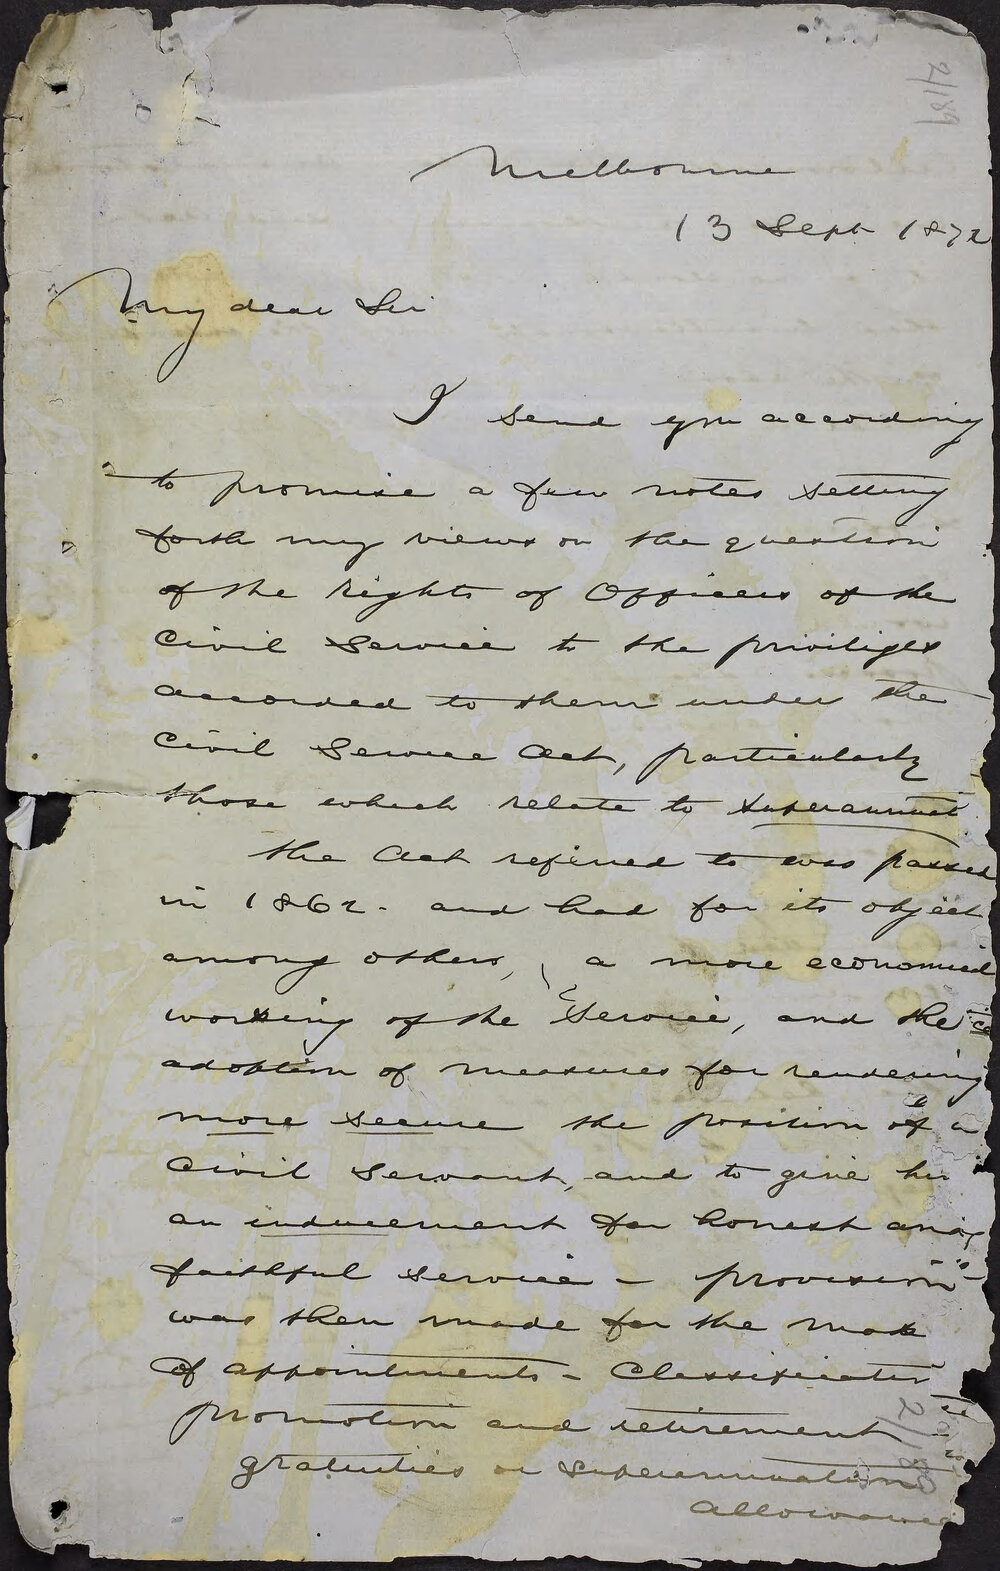 2/189
Melbourne
13 Sept 1872
My dear Sir
I send you according
to promise a few notes setting
forth my views on the question
of the Rights of Officers of the
Civil Service to the priviliges
accorded to them under the
Civil Service Act, particularly
those which relate to superannuat
the Act referred to was passed
in 1862. and had for its object
among others, a more economical
working of the Service, and the
adoption of measures for rendering
more secure the position of a
Civil Servant, and to give him
an inducement for honest and
faithful service - provision
was then made for the mode
of appointments - Classification
promotion and retirement
gratuities or superannuation
allowance